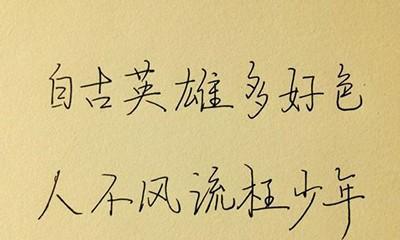 自古英雄多好色
人不风流枉少年